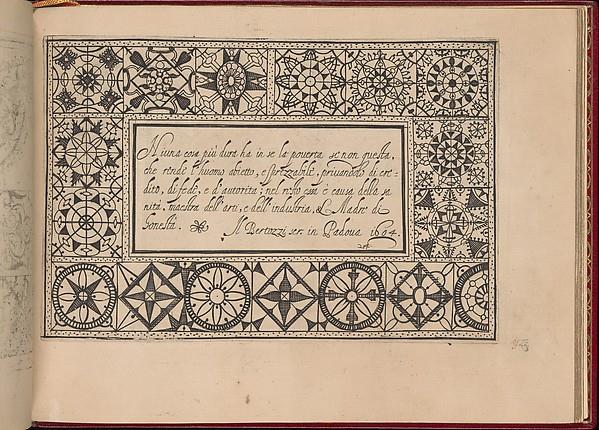 Niuna cosa più dura ha in se la povertà se non questa,
che rende l'huomo abietto, e sprezzabile, privandolo di cre=
dito, di fede, e d'autorità; nel resto essa è causa della sa
nità, maestra dell'arti, e dell'industria, & Madre di
honestà. Il Bertozzi scr. in Padova 1604.